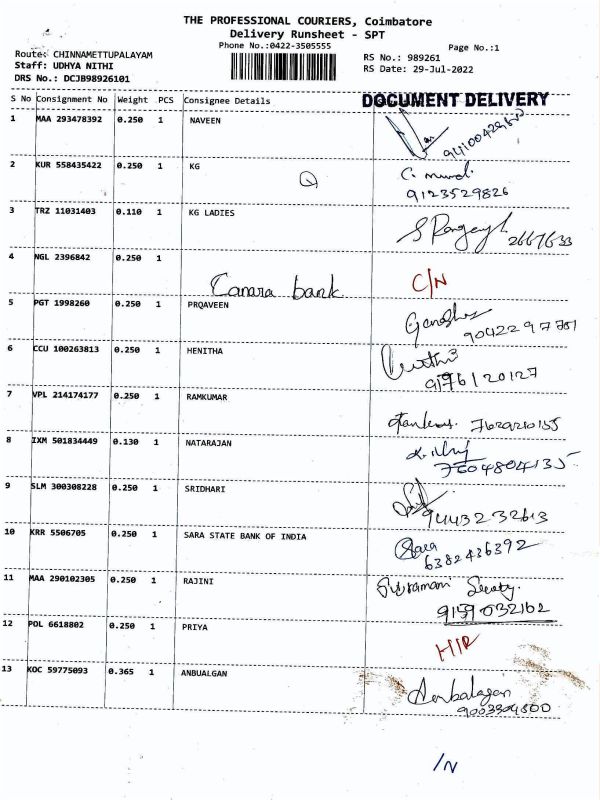 THE PROFESSIONAL COURIERS, Coimbatore
Delivery Runsheet - SPT
Phone No.:0422-3505555
Page No.:1
Route: CHINNAMETTUPALAYAM
Staff: UDHYA NITHI
DRS No.: DCJB98926101
RS No.: 989261
RS Date: 29-Jul-2022
S No Consignment No Weight PCS Consignee Details DOCUMENT DELIVERY
1 MAA 293478392 0.250 1 NAVEEN
2 KUR 558435422 0.250 1 KG
9123529826
3 TRZ 11031403 0.110 1 KG LADIES
2667633
4 NGL 2396842 0.250 1
Canara bank C/N
5 PGT 1998260 0.250 1 PRQAVEEN
6 CCU 100263813 0.250 1 HENITHA
9176120127
7 VPL 214174177 0.250 1 RAMKUMAR
8 IXM 501834449 0.130 1 NATARAJAN
7604804135
9 SLM 300308228 0.250 1 SRIDHARI
9443232613
10 KRR 5506705 0.250 1 SARA STATE BANK OF INDIA
Sara
6382436392
11 MAA 290102305 0.250 1 RAJINI
9159032162
12 POL 6618802 0.250 1 PRIYA
13 KOC 59775093 0.365 1 ANBUALGAN
Anbalagan
9003304300
/N